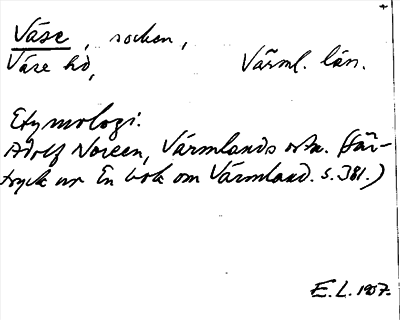 Väse, socken,
Väse hd, Värml. län.
Etymologi:
Adolf Noreen, Värmlands ortn. (Sär-
tryck ur En bok om Värmland. s. 381.)
E. L. 1907.